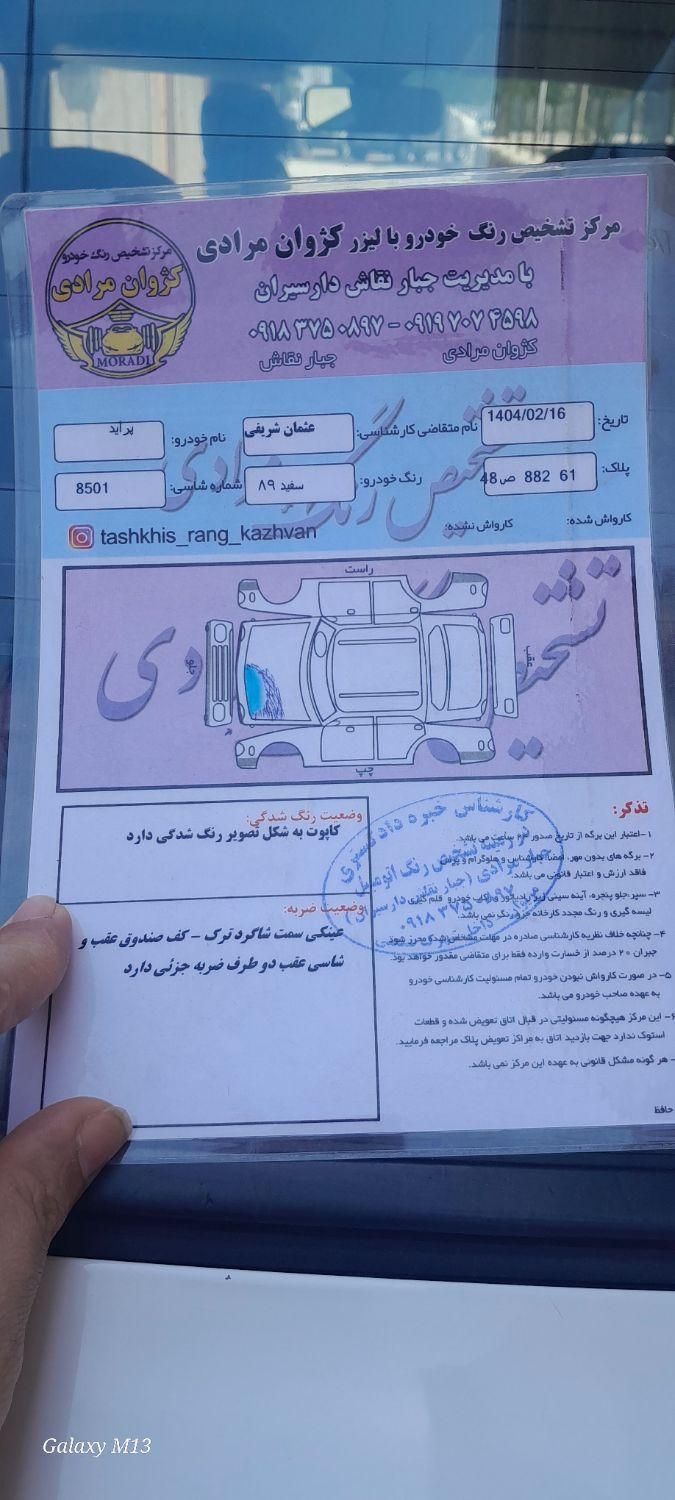 مرکز تشخیص رنگ خودرو با لیزر کژوان مرادی
با مدیریت جبار نقاش دارسیران
۰۹۱۸ ۳۷۵ ۰۸۹۷ - ۰۹۱۹ ۷۰۷ ۴۵۹۸
کژوان مرادی جبار نقاش
مرکز تشخیص رنگ خودرو
کژوان مرادی
MORADI
تاریخ: 1404/02/16 نام متقاضی کارشناسی: عثمان شریفی نام خودرو: پراید
پلاک: 61 882 ص 48 رنگ خودرو: سفید ۸۹ شماره شاسی: 8501
کارواش شده: کارواش نشده:
tashkhis_rang_kazhvan
راست
جلو
عقب
چپ
وضعیت رنگ شدگی:
کاپوت به شکل تصویر رنگ شدگی دارد
وضعیت ضربه:
عینکی سمت شاگرد ترک - کف صندوق عقب و
شاسی عقب دو طرف ضربه جزئی دارد
تذکر:
۱- اعتبار این برگه از تاریخ صدور ۲۴ ساعت می باشد.
۲- برگه های بدون مهر، امضا کارشناس و هلوگرام و پرس
فاقد ارزش و اعتبار قانونی می باشد.
۳- سپر، جلو پنجره، آینه سینی زیر رادیاتور و رکاب خودرو قلم گیری
لیسه گیری و رنگ مجدد کارخانه جزو رنگ نمی باشد.
۴- چنانچه خلاف نظریه کارشناسی صادره در مهلت مشخص شده محرز شود
جبران ۲۰ درصد از خسارت وارده فقط برای متقاضی مقدور خواهد بود.
۵- در صورت کارواش نبودن خودرو تمام مسئولیت کارشناسی خودرو
به عهده صاحب خودرو می باشد.
۶- این مرکز هیچگونه مسئولیتی در قبال اتاق تعویض شده و قطعات
استوک ندارد جهت بازدید اتاق به مراکز تعویض پلاک مراجعه فرمایید.
- هر گونه مشکل قانونی به عهده این مرکز نمی باشد.
حافظ
کارشناس خبره دادگستری
در زمینه تشخیص رنگ اتومبیل
جبار مرادی (جبار نقاش دارسیران)
۰۹۱۸ ۳۷۵ ۰۸۹۷
Galaxy M13